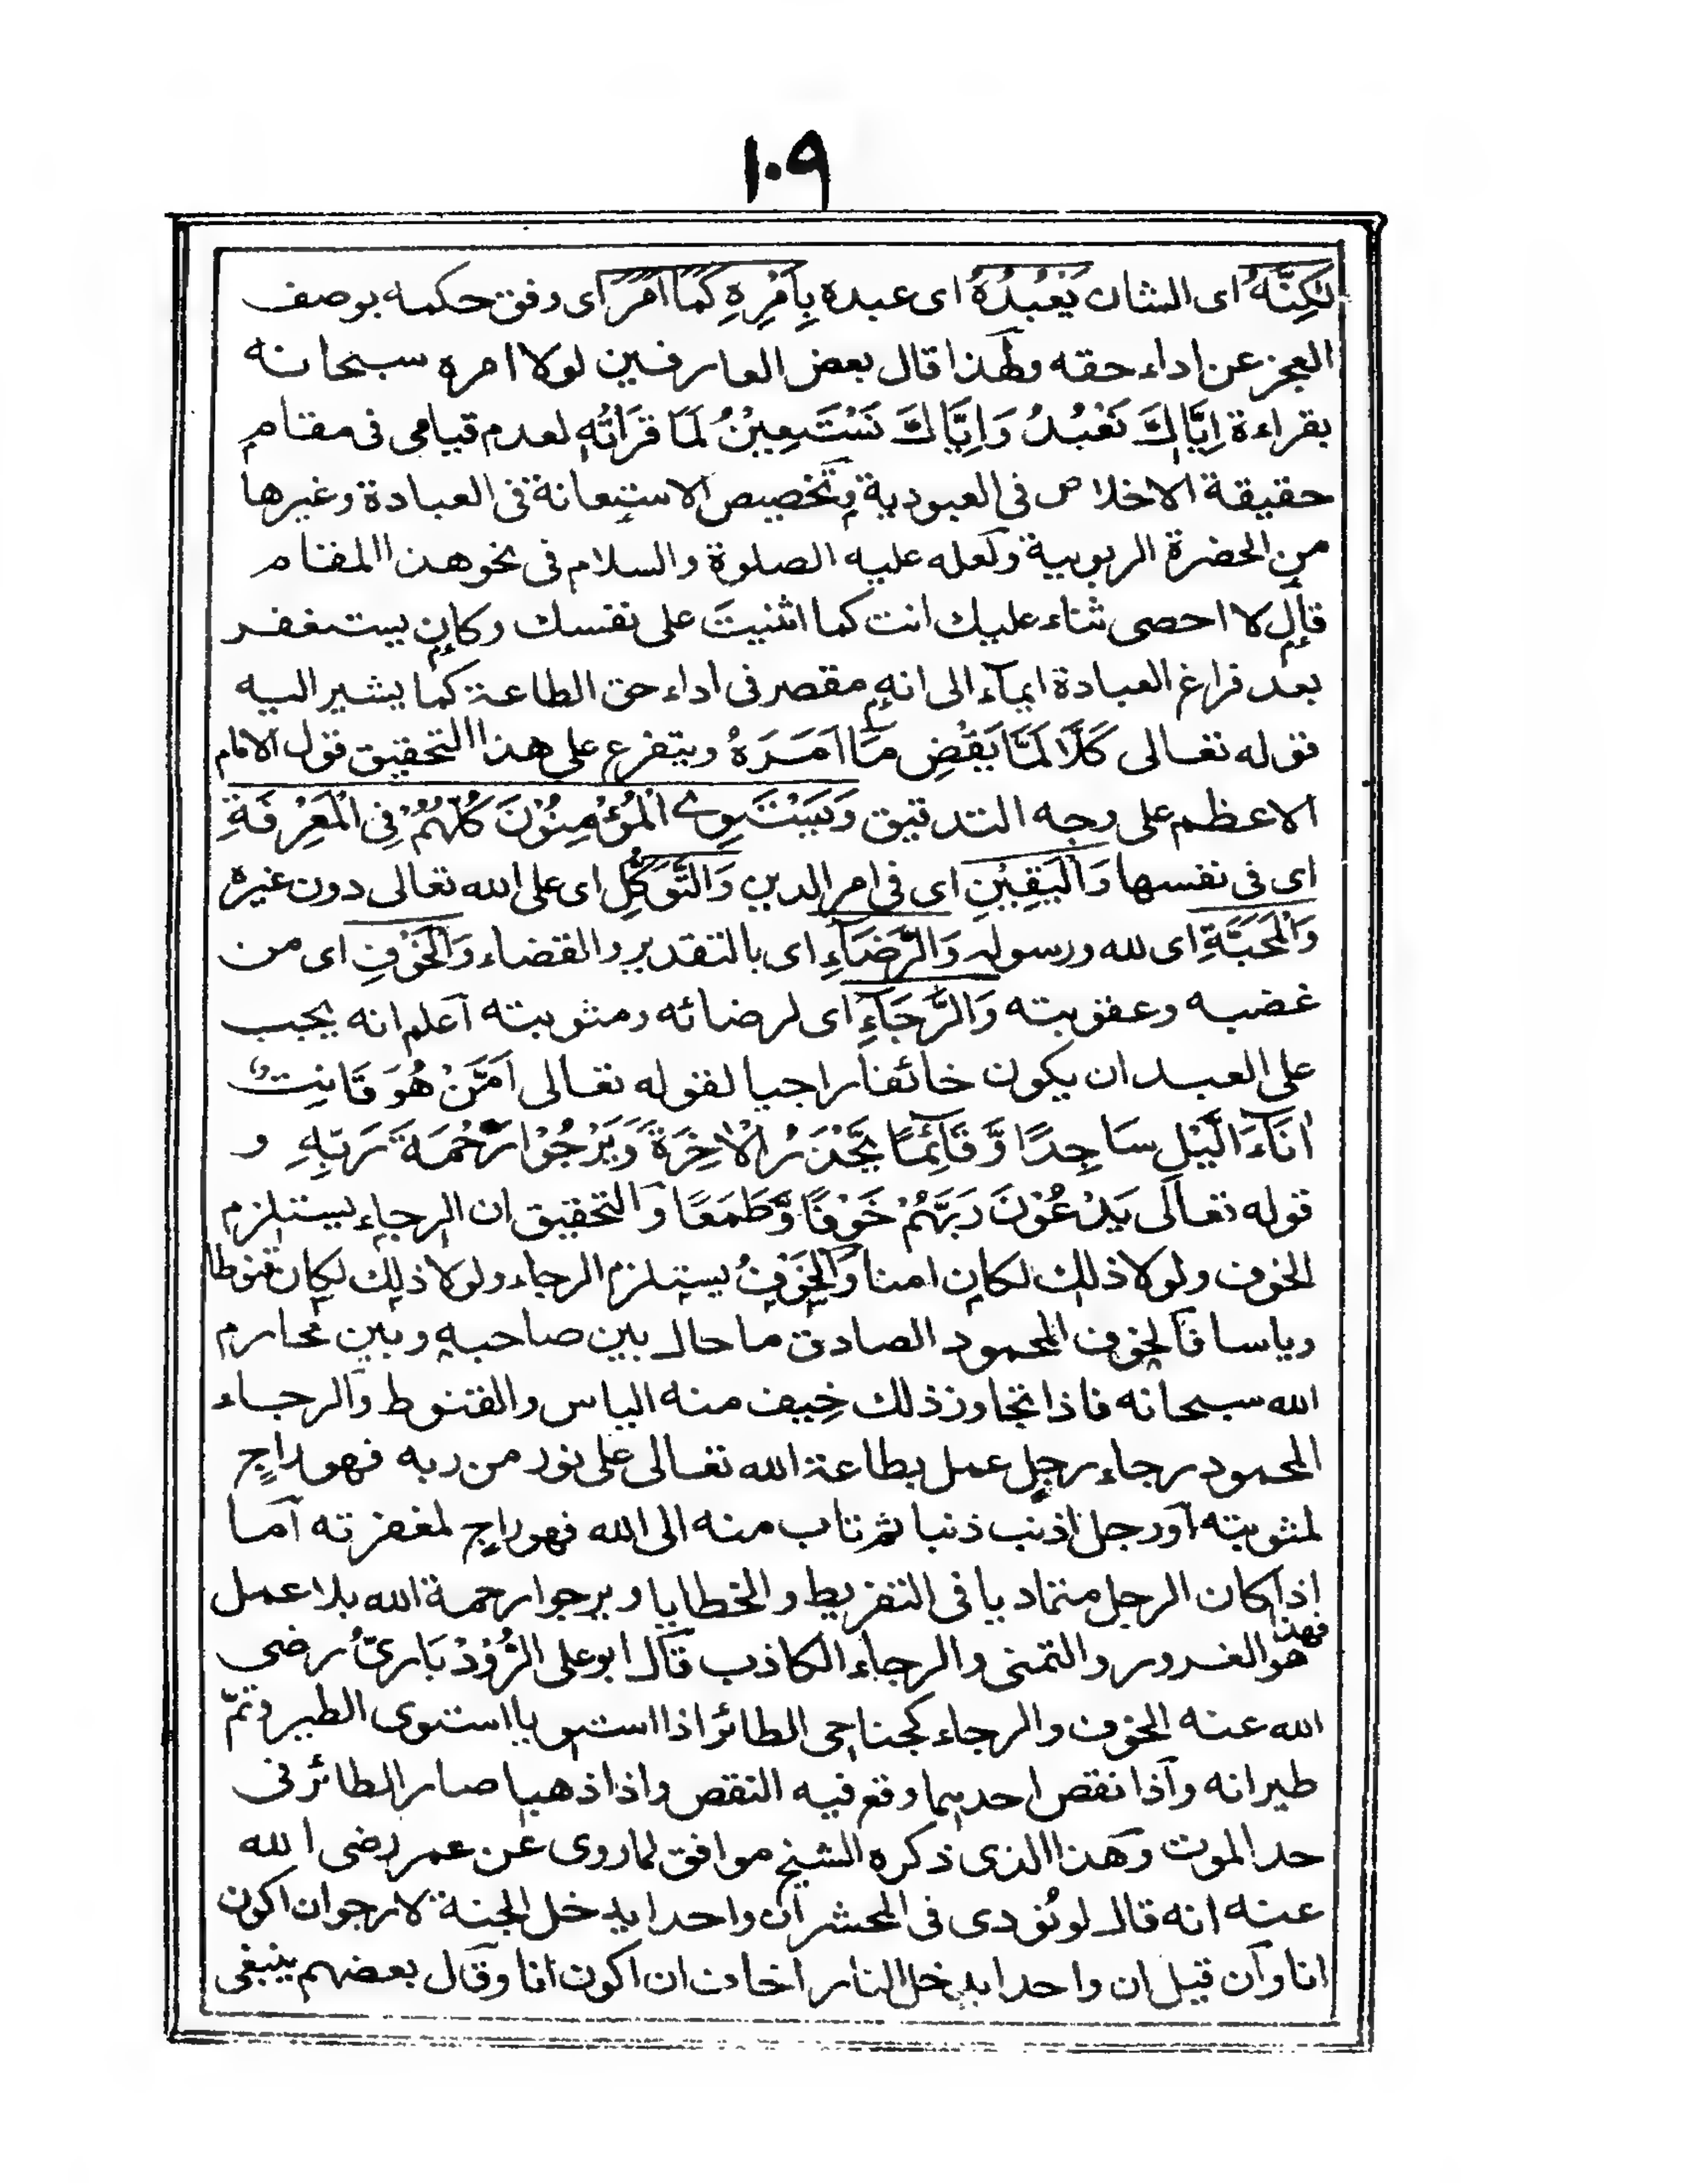 ١٠٩
لٰكِنَّهُ اى الشان يَعْبُدُهُ اى عبده بِاَمْرِهِ كَمَا اَمَرَ اى وفق حكمه بوصف
العجز عن اداء حقه ولهذا قال بعض العارفين لولا امره سبحانه
بقراءة اِيَّاكَ نَعْبُدُ وَاِيَّاكَ نَسْتَعِيْنُ لَمَا قَرَاْتُه لعدم قيامى فى مقام
حقيقة الاخلاص فى العبودية وتخصيص الاستعانة فى العبادة وغيرها
من الحضرة الربوبية ولعله عليه الصلوة والسلام فى نحو هذا المقام
قال لا احصى ثناء عليك انت كما اثنيتَ على نفسك وكان يستغفر
بعد فراغ العبادة ايماء الى انه مقصر فى اداء حق الطاعة كما يشير اليه
قوله تعالى كَلَّا لَمَّا يَقْضِ مَا اَمَرَهُ ويتفرع على هذا التحقيق قول الامام
الاعظم على وجه التدقيق وَيَسْتَوِى الْمُؤْمِنُوْنَ كُلُّهُمْ فِى الْمَعْرِفَةِ
اى فى نفسها وَالْيَقِيْنِ اى فى امر الدين وَالتَّوَكُّلِ اى على الله تعالى دون غيره
وَالْمَحَبَّةِ اى لله ورسوله وَالرِّضَاءِ اى بالتقدير والقضاء وَالْخَوْفِ اى من
غضبه وعقوبته وَالرَّجَاءِ اى لرضائه ومثوبته اعلم انه يجب
على العبد ان يكون خائفا راجيا لقوله تعالى اَمَّنْ هُوَ قَانِتٌ
اٰنَاءَ الَّيْلِ سَاجِدًا وَّقَائِمًا يَّحْذَرُ الْاٰخِرَةَ وَيَرْجُوْا رَحْمَةَ رَبِّهِ و
قوله تعالى يَدْعُوْنَ رَبَّهُمْ خَوْفًا وَّطَمَعًا والتحقيق ان الرجاء يستلزم
الخوف ولولا ذلك لكان امنا وَالْخَوْفُ يستلزم الرجاء ولولا ذلك لكان قنوطا
وياسا فالخوف المحمود الصادق ما حال بين صاحبه وبين محارم
الله سبحانه فاذا تجاوز ذلك خِيف منه الياس والقنوط والرجاء
المحمود رجاء رجل عمل بطاعة الله تعالى على نور من ربه فهو راجٍ
لمثوبته او رجل اذنب ذنبا ثم تاب منه الى الله فهو راجٍ لمغفرته اما
اذا كان الرجل متماديا فى التفريط والخطايا ويرجوا رحمة الله بلا عمل
فهذا هو الغرور والتمنى والرجاء الكاذب قال ابو على الرُّوْذْبَارىّ رضى
الله عنه الخوف والرجاء كجناحى الطائر اذا استويا استوى الطير وتمّ
طيرانه واذا نقص احدهما وقع فيه النقص واذا ذهبا صار الطائر فى
حد الموت وهذا الذى ذكره الشيخ موافق لما روى عن عمر رضى الله
عنه انه قال لو نُودى فى المحشر ان واحدا يدخل الجنة لارجو ان اكون
انا وان قيل ان واحدا يدخل النار اخاف ان اكون انا وقال بعضهم ينبغى